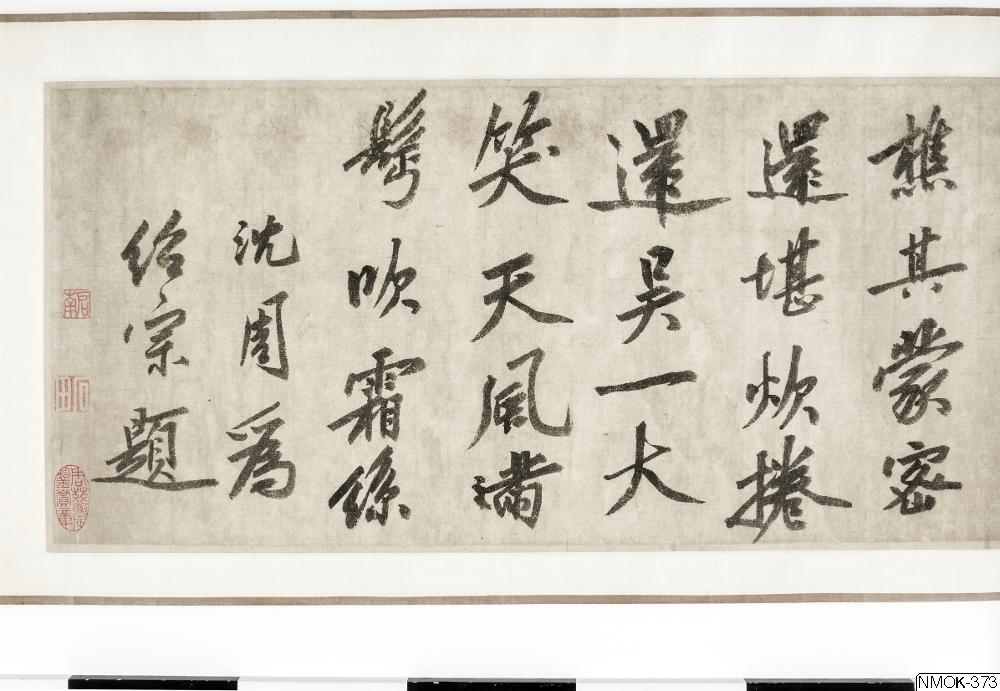 樵其蒙密
還堪炊捲
還吳一大
笑天風滿
髩吹霜絲
沈周爲
紹宗題
啓南
NMOK-373